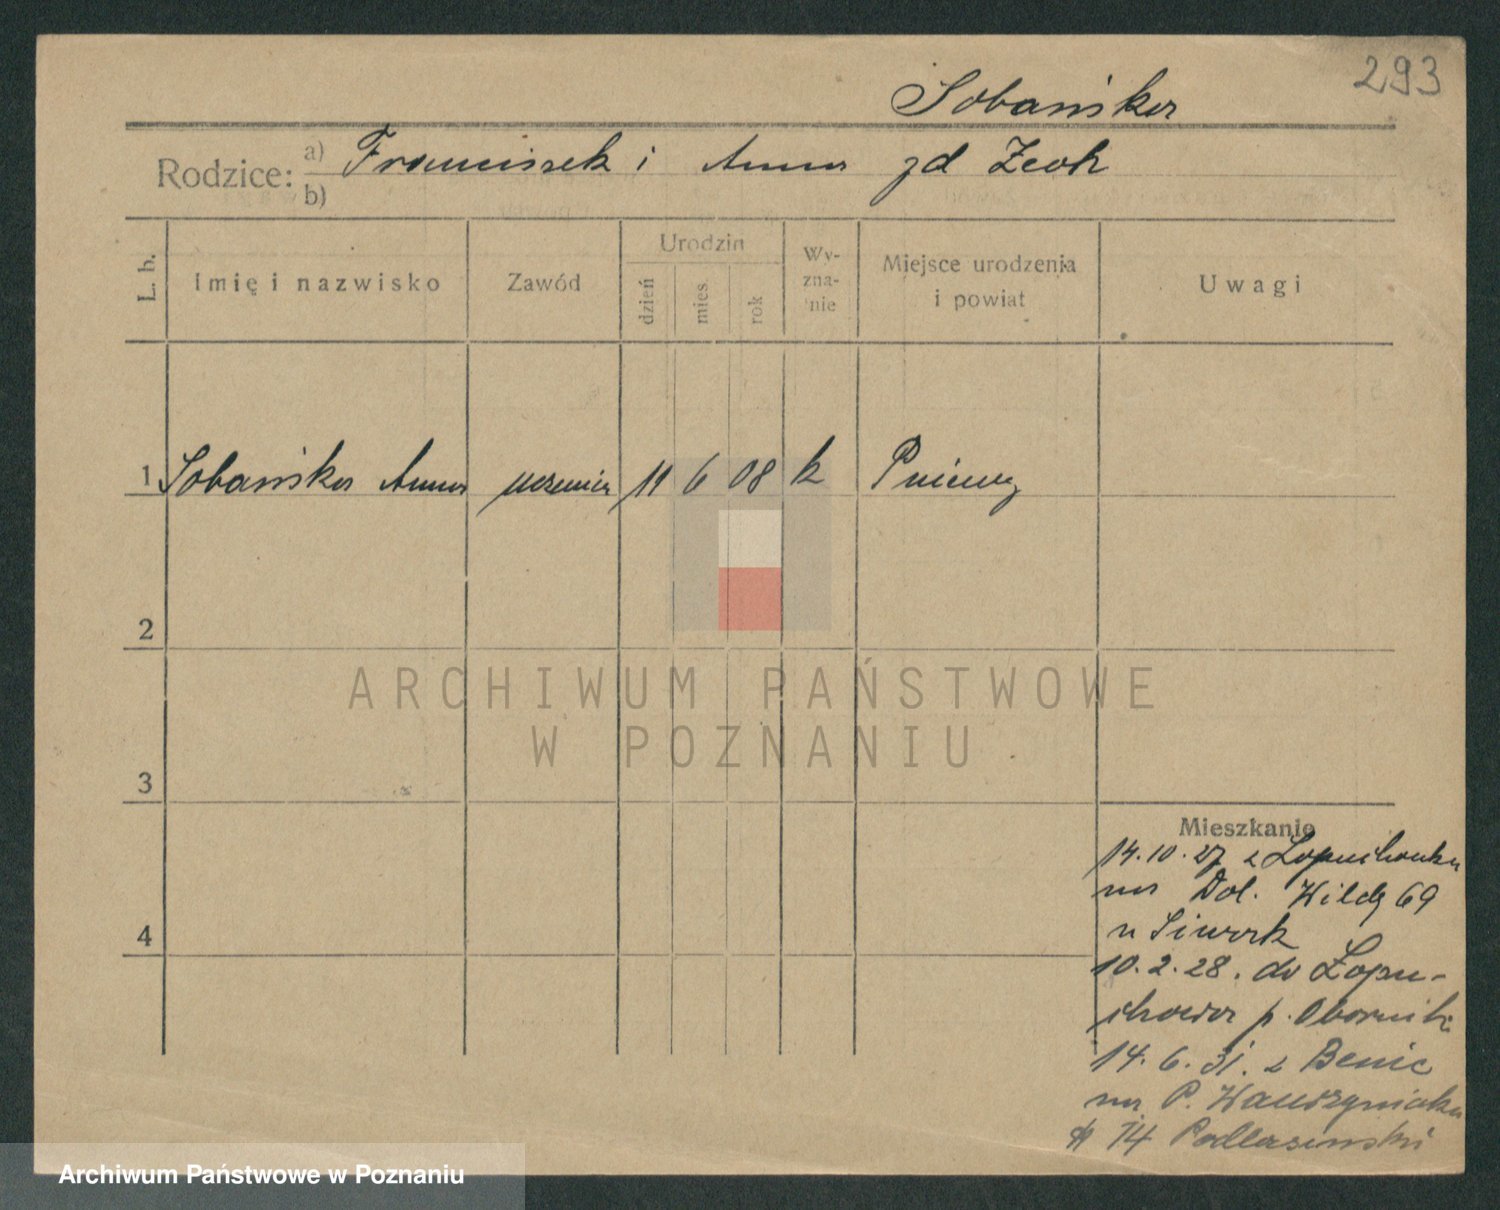 293
Sobańska
Rodzice: a) Franciszek i Anna zd Żech
b)
L. b. Imię i nazwisko Zawód Urodzin dzień mies. rok Wy-zna-nie Miejsce urodzenia i powiat Uwagi
1 Sobańska Anna uczenica 11 6 08 k Pniewy
2
3
4
ARCHIWUM PAŃSTWOWE
W POZNANIU
Mieszkanie
14.10.27 z Łopuchowka
na Dol. Wildę 69
u Siwork
10.2.28. do Łopu-
chowa p. Obornik
14.6.31. z Benic
na P. Wawrzyniaka
14
Archiwum Państwowe w Poznaniu